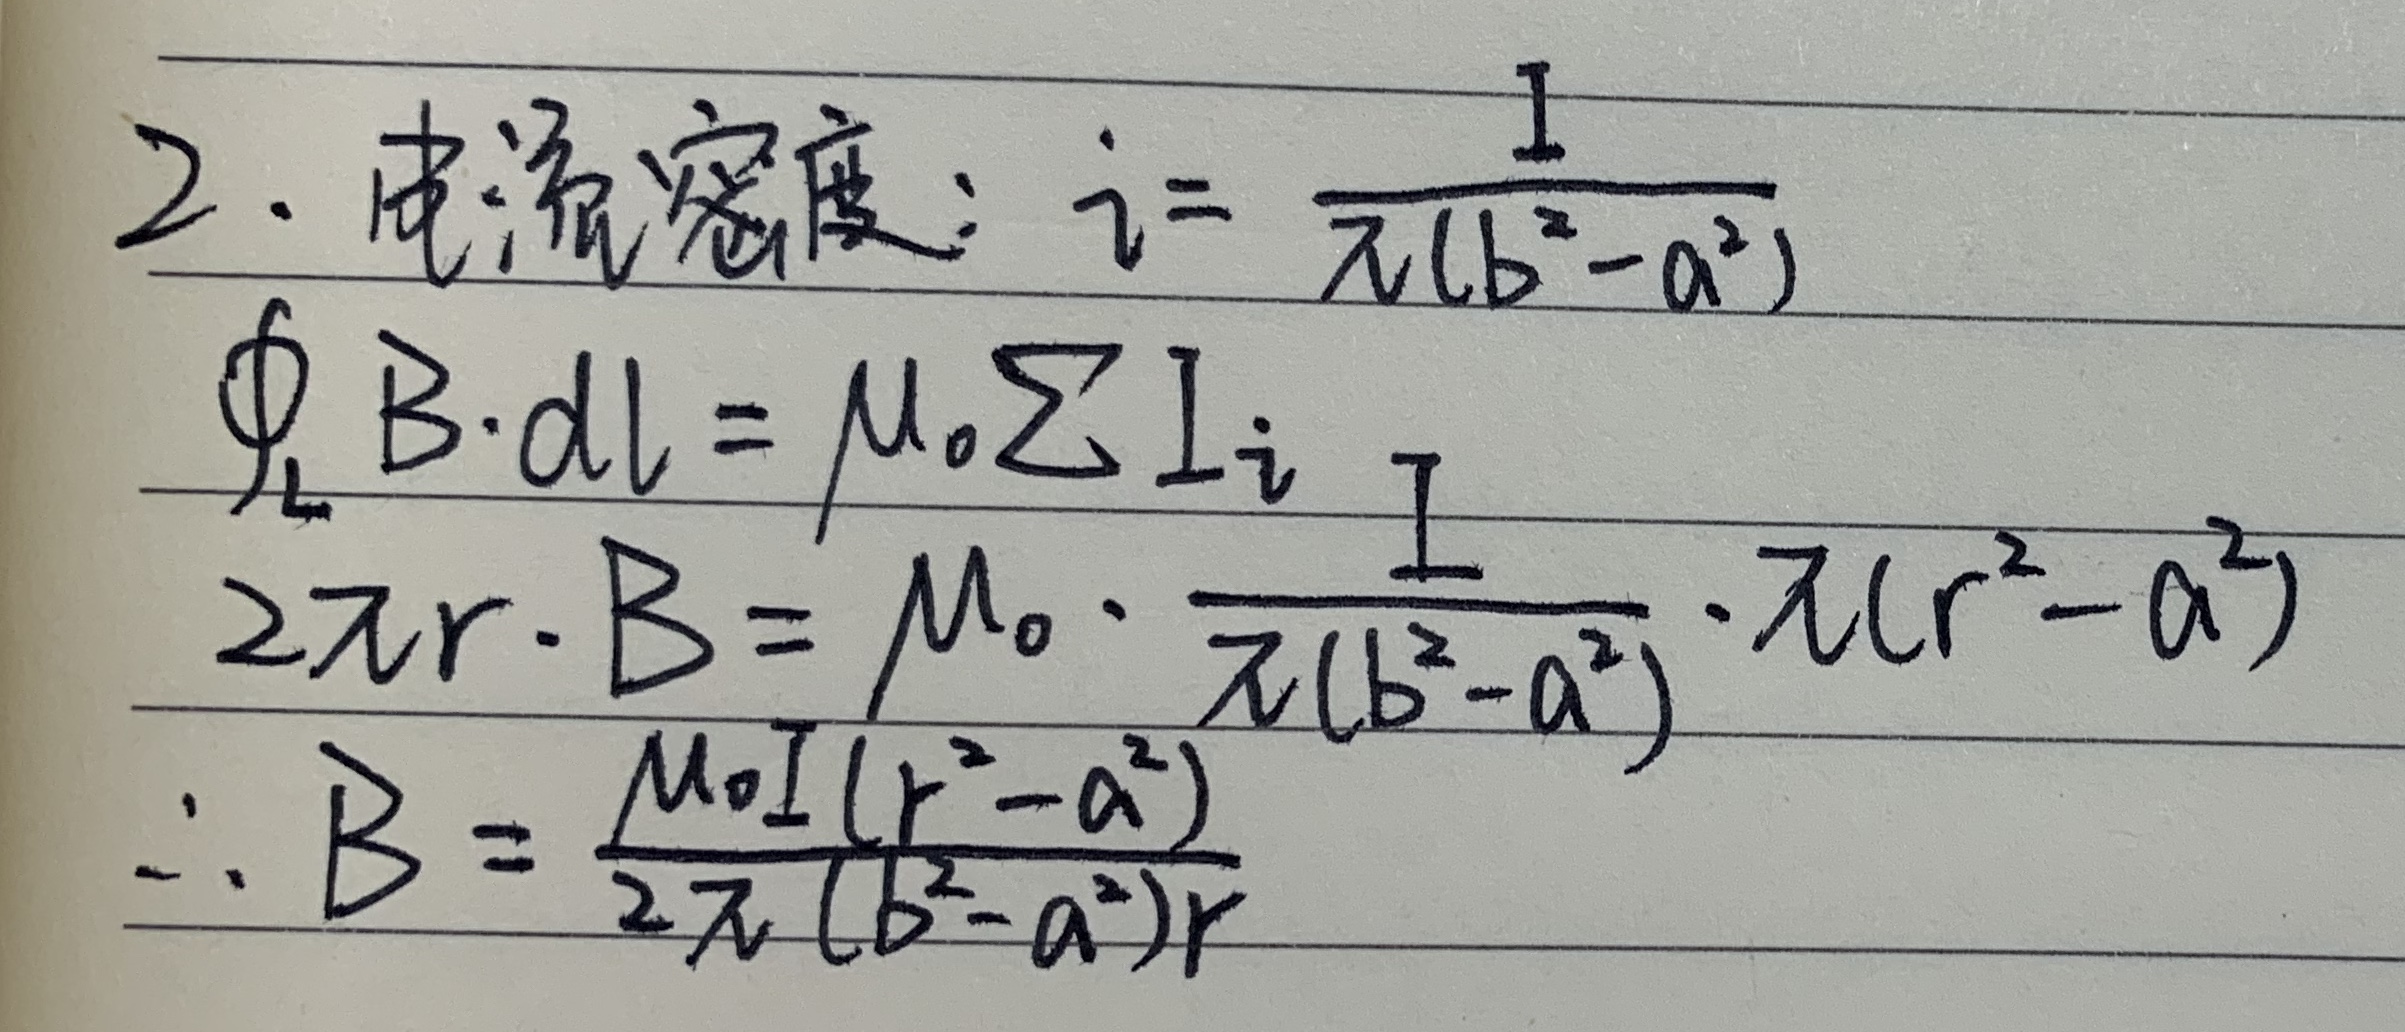 2. 电流密度: i = I / π(b² - a²)
∮_L B·dl = μ₀ Σ I_i
2πr · B = μ₀ · I / π(b² - a²) · π(r² - a²)
∴ B = μ₀I(r² - a²) / 2π(b² - a²)r